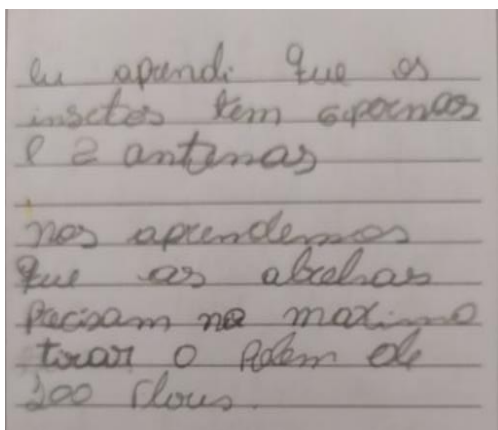 eu aprendi que os
insetos tem 6 pernas
e 2 antenas
nos aprendemos
que as abelhas
precisam no maximo
tirar o polem de
200 flores.